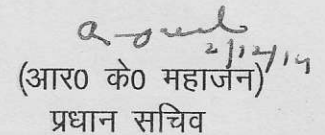 2/12/14
(आर0 के0 महाजन)
प्रधान सचिव